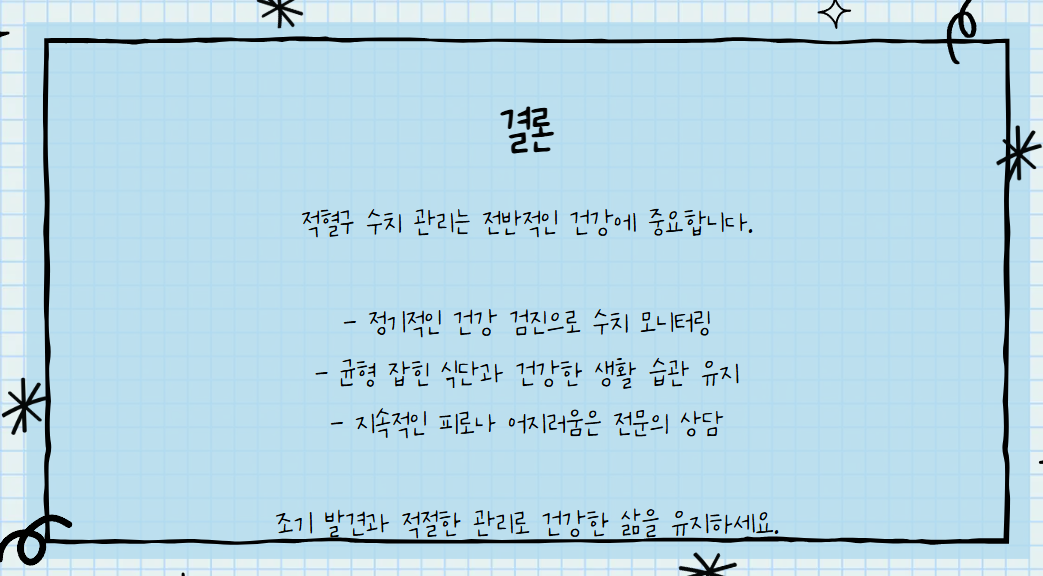 결론
적혈구 수치 관리는 전반적인 건강에 중요합니다.
- 정기적인 건강 검진으로 수치 모니터링
- 균형 잡힌 식단과 건강한 생활 습관 유지
- 지속적인 피로나 어지러움은 전문의 상담
조기 발견과 적절한 관리로 건강한 삶을 유지하세요.